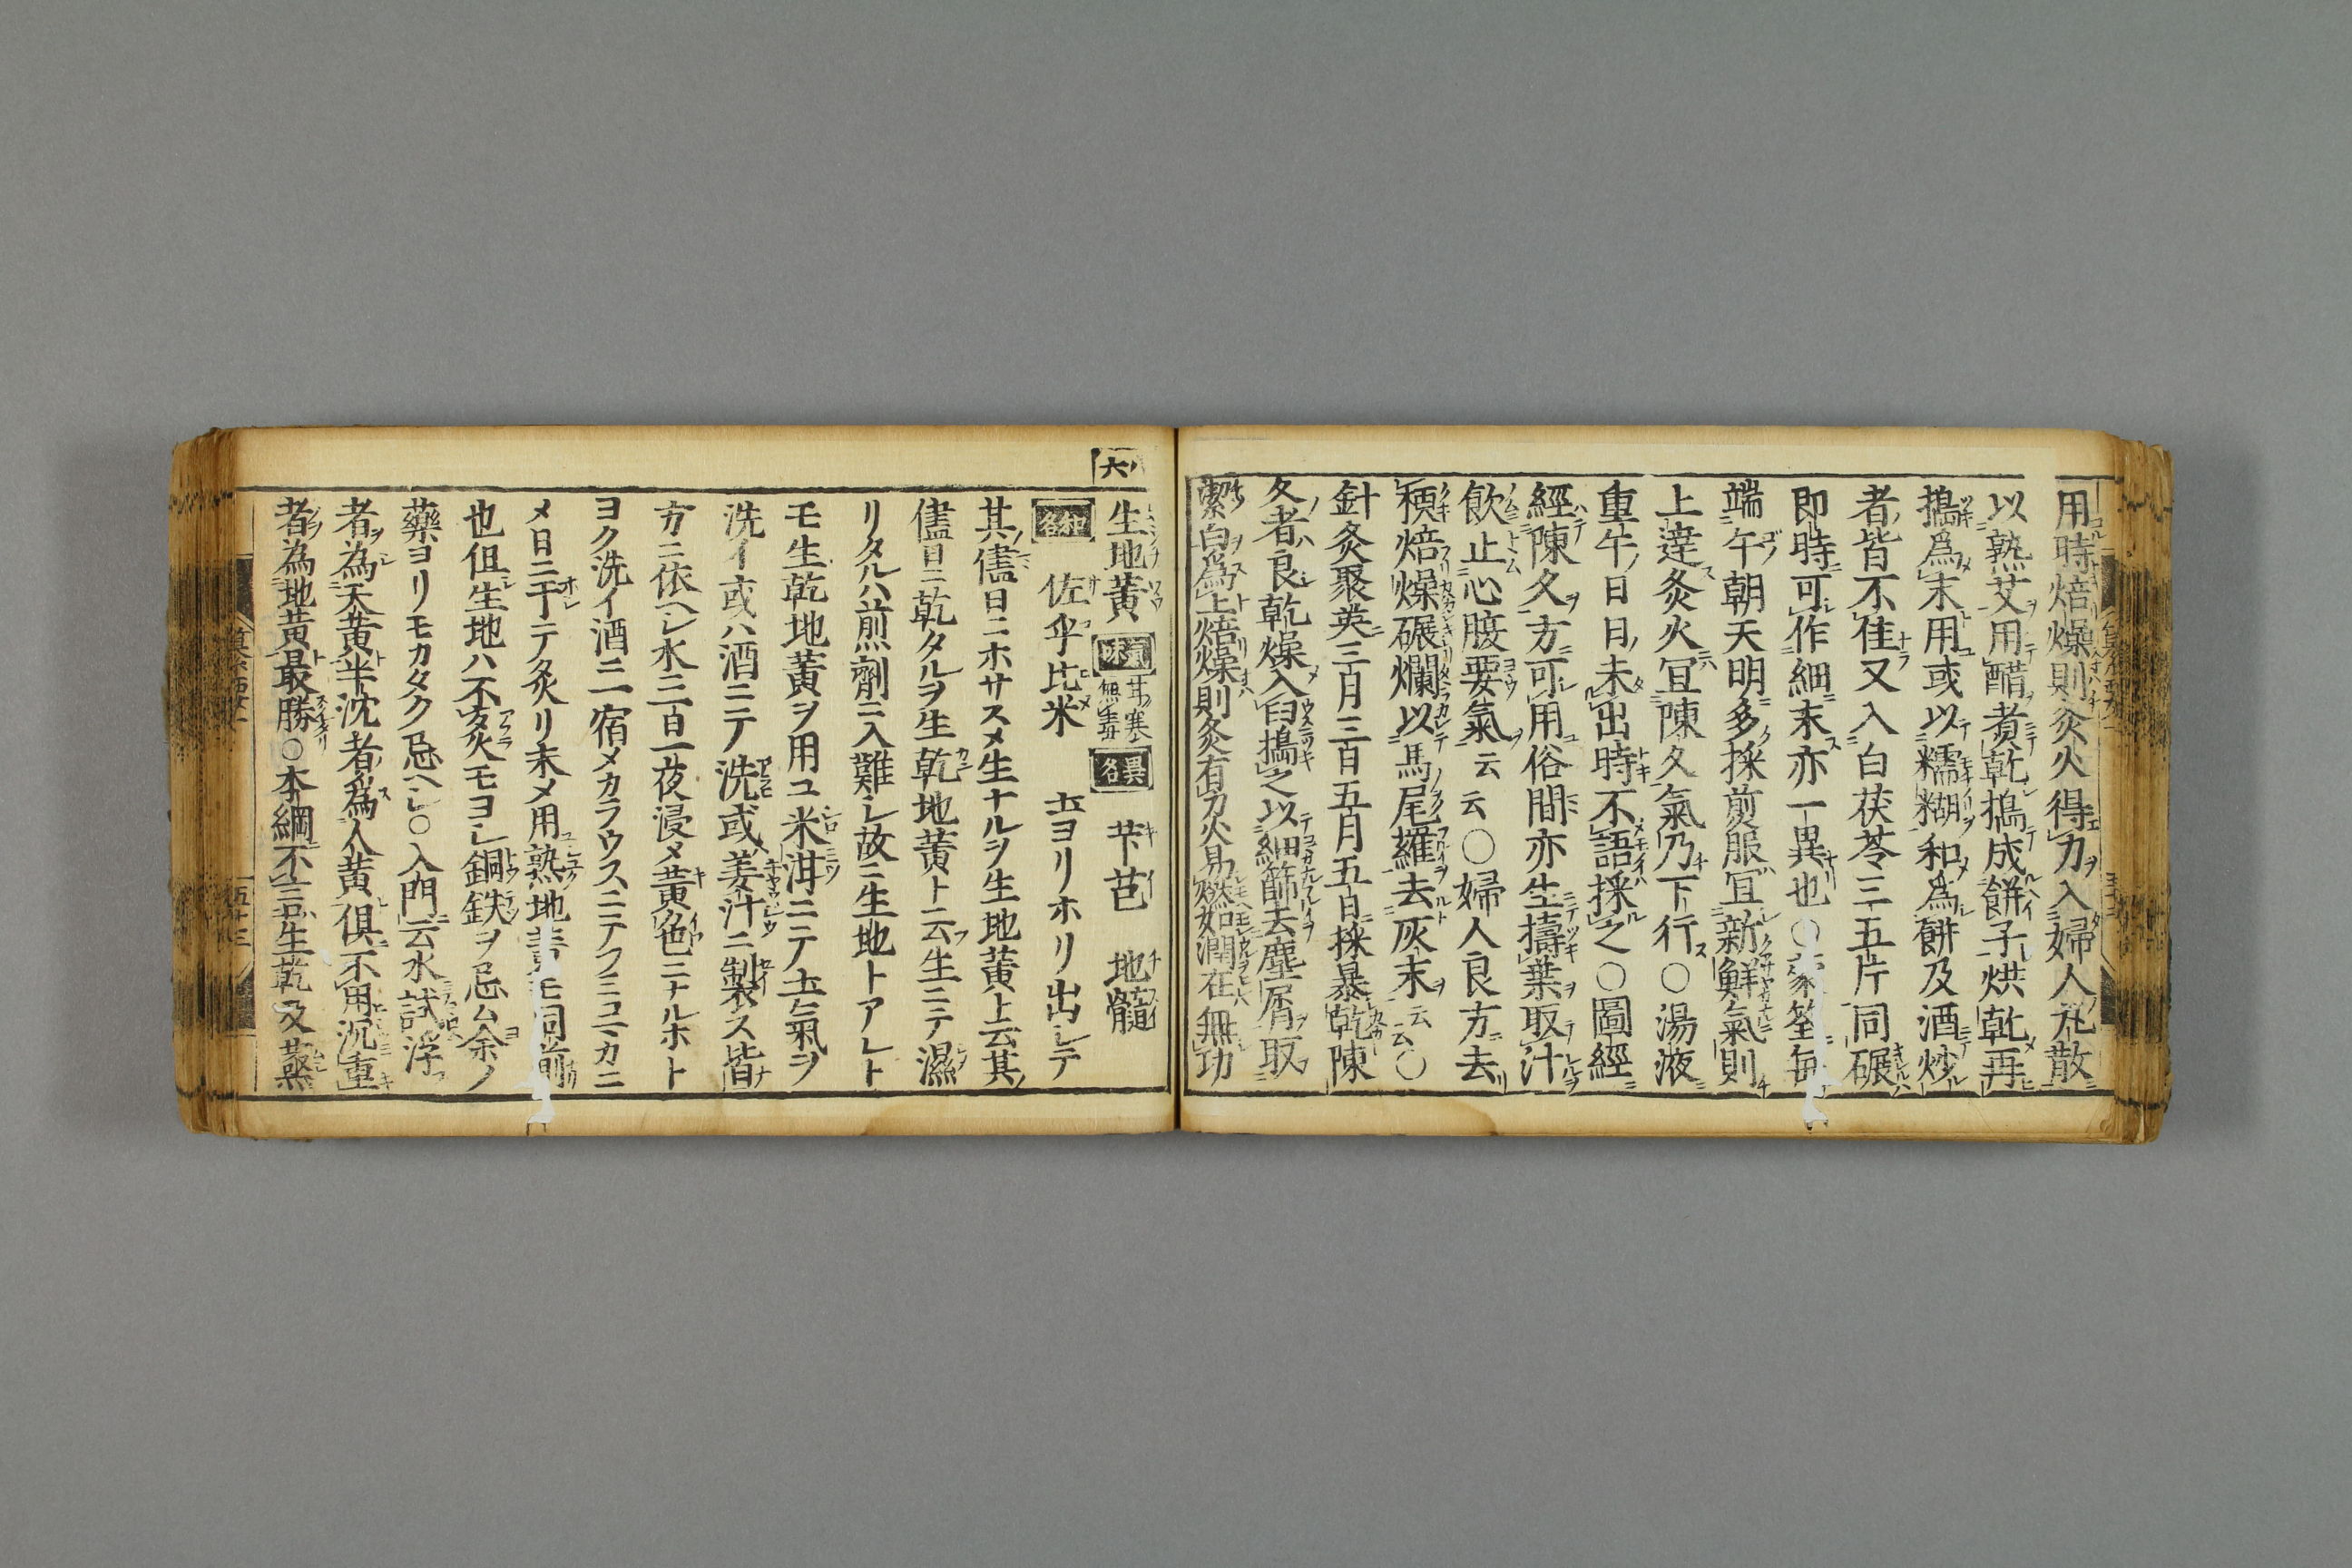 用時焙燥則灸火得力入婦人丸散
以熟艾用醋煮乾搗成餅子烘乾再
搗爲末用或以糯糊和爲餅及酒炒
者皆不佳又入白茯苓三五片同碾
即時可作細末亦一異也○蒙筌毎
端午朝天明多採煎服宜新鮮氣則
上達灸火宜陳久氣乃下行○湯液
重午日日未出時不語採之○圖經
經陳久方可用俗間亦生擣葉取汁
飲止心腹要氣云云○婦人良方去
梗焙燥碾爛以馬尾羅去灰末云云○
針灸聚英三月三日五月五日採暴乾陳
久者良乾燥入臼搗之以細篩去塵屑取
潔白爲上焙燥則灸有力火易燃如潤在無功
六
生地黄 氣味 甘寒無毒 異名 芐 芑 地髓
和名 佐乎比米 土ヨリホリ出シテ
其儘日ニホサスメ生ナルヲ生地黄ト云其
儘日ニ乾タルヲ生乾地黄ト云生ニテ濕
リタルハ煎劑ニ入難シ故ニ生地トアレト
モ生乾地黄ヲ用ユ米泔ニテ土氣ヲ
洗イ或ハ酒ニテ洗或姜汁ニ製ス皆
方ニ依ヘシ水ニ一日一夜浸メ黄色ニナルホト
ヨク洗イ酒ニ一宿メカラウスニテフミコマカニ
メ日ニ干テ炙リ末メ用熟地黄モ同前
也但生地ハ不炙モヨシ銅鉄ヲ忌ム余ノ
藥ヨリモカタク忌ヘシ○入門云水試浮
者為天黄半沈者為人黄倶不用沉重
者為地黄最勝○本綱不言生乾及蒸